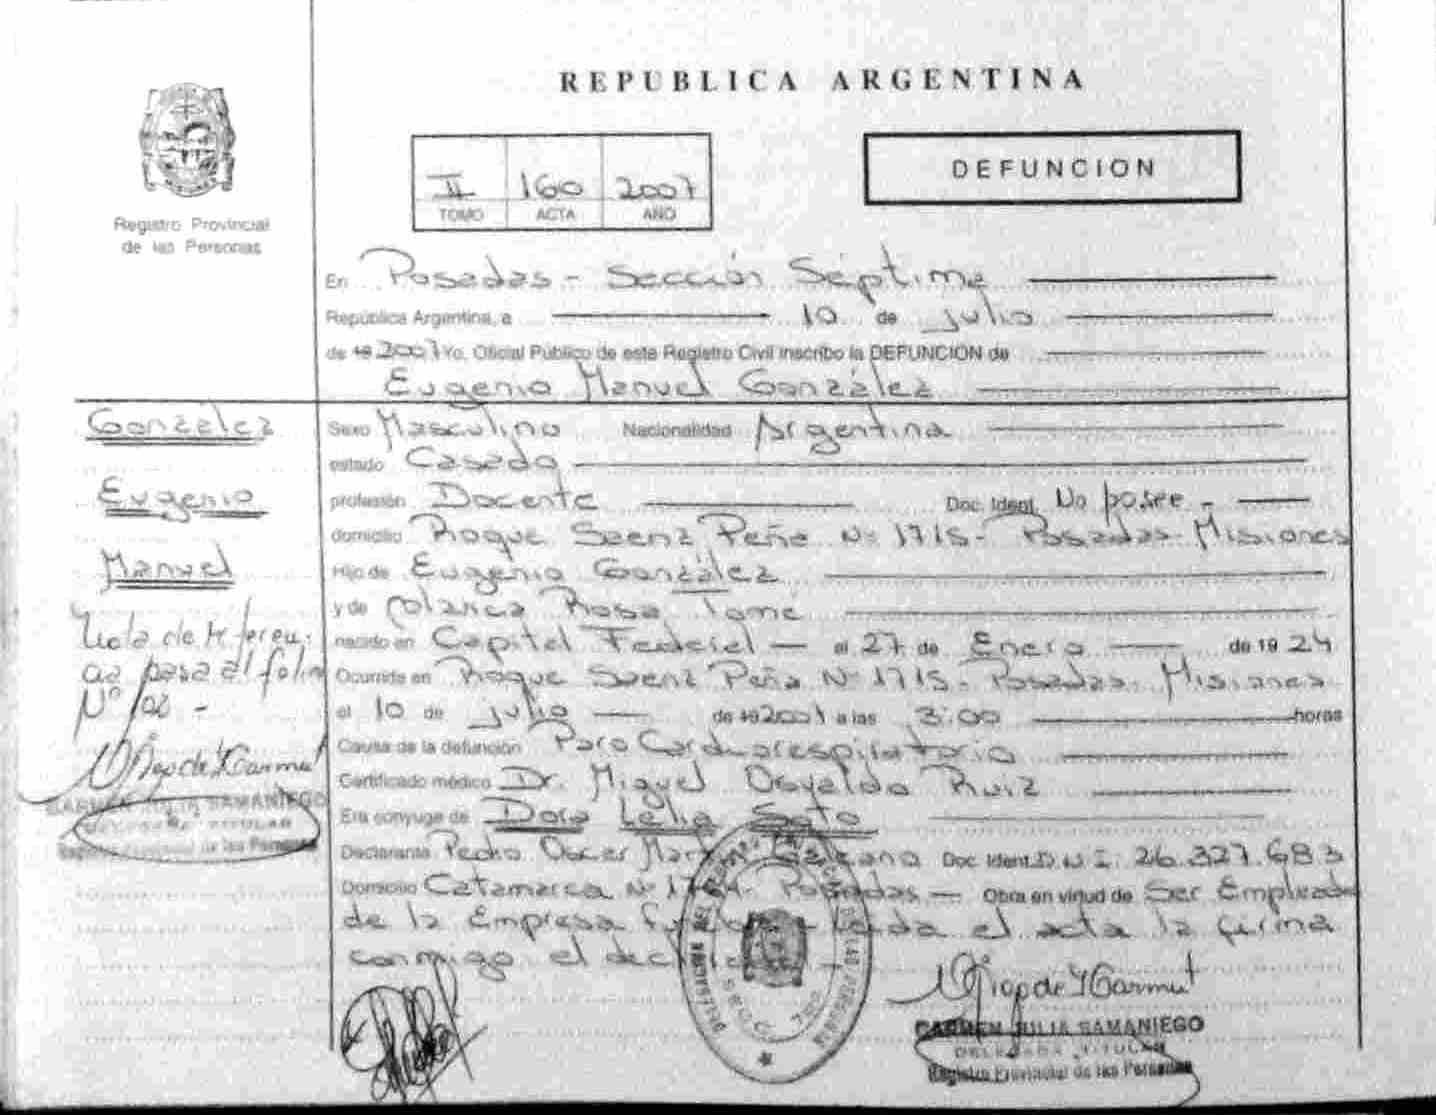 REPUBLICA ARGENTINA
Registro Provincial
de las Personas
II 160 2007
TOMO ACTA AÑO
DEFUNCION
En Posadas - Sección Séptima
República Argentina, a 10 de julio
de 19 2007 Yo, Oficial Público de este Registro Civil inscribo la DEFUNCION de
Eugenio Manuel González
González
Eugenio
Manuel
Nota de
pasa al folio
Nº 102 -
CARMEN JULIA SAMANIEGO
DELEGADA TITULAR
Registro Provincial de las Personas
Sexo Masculino Nacionalidad Argentina
estado Casado
profesión Docente Doc. Ident. No posee -
domicilio Roque Saenz Peña Nº 1715 - Posadas - Misiones
Hijo de Eugenio González
y de Blanca Rosa Tomé
nacido en Capital Federal - el 27 de Enero de 19 24
Ocurrida en Roque Saenz Peña Nº 1715 - Posadas - Misiones
el 10 de julio de 19 2007 a las 3:00 horas
Causa de la defunción Paro Cardiorespiratorio
Certificado médico Dr. Miguel Osvaldo Ruiz
Era conyuge de Dora Lelia Soto
Declarante Pedro Oscar Doc. Ident. D.N.I. 26.327.683
Domicilio Catamarca Nº Posadas - Obra en virtud de Ser Empleado
de la Empresa Leída el acta la firma
conmigo el
CARMEN JULIA SAMANIEGO
DELEGADA TITULAR
Registro Provincial de las Personas